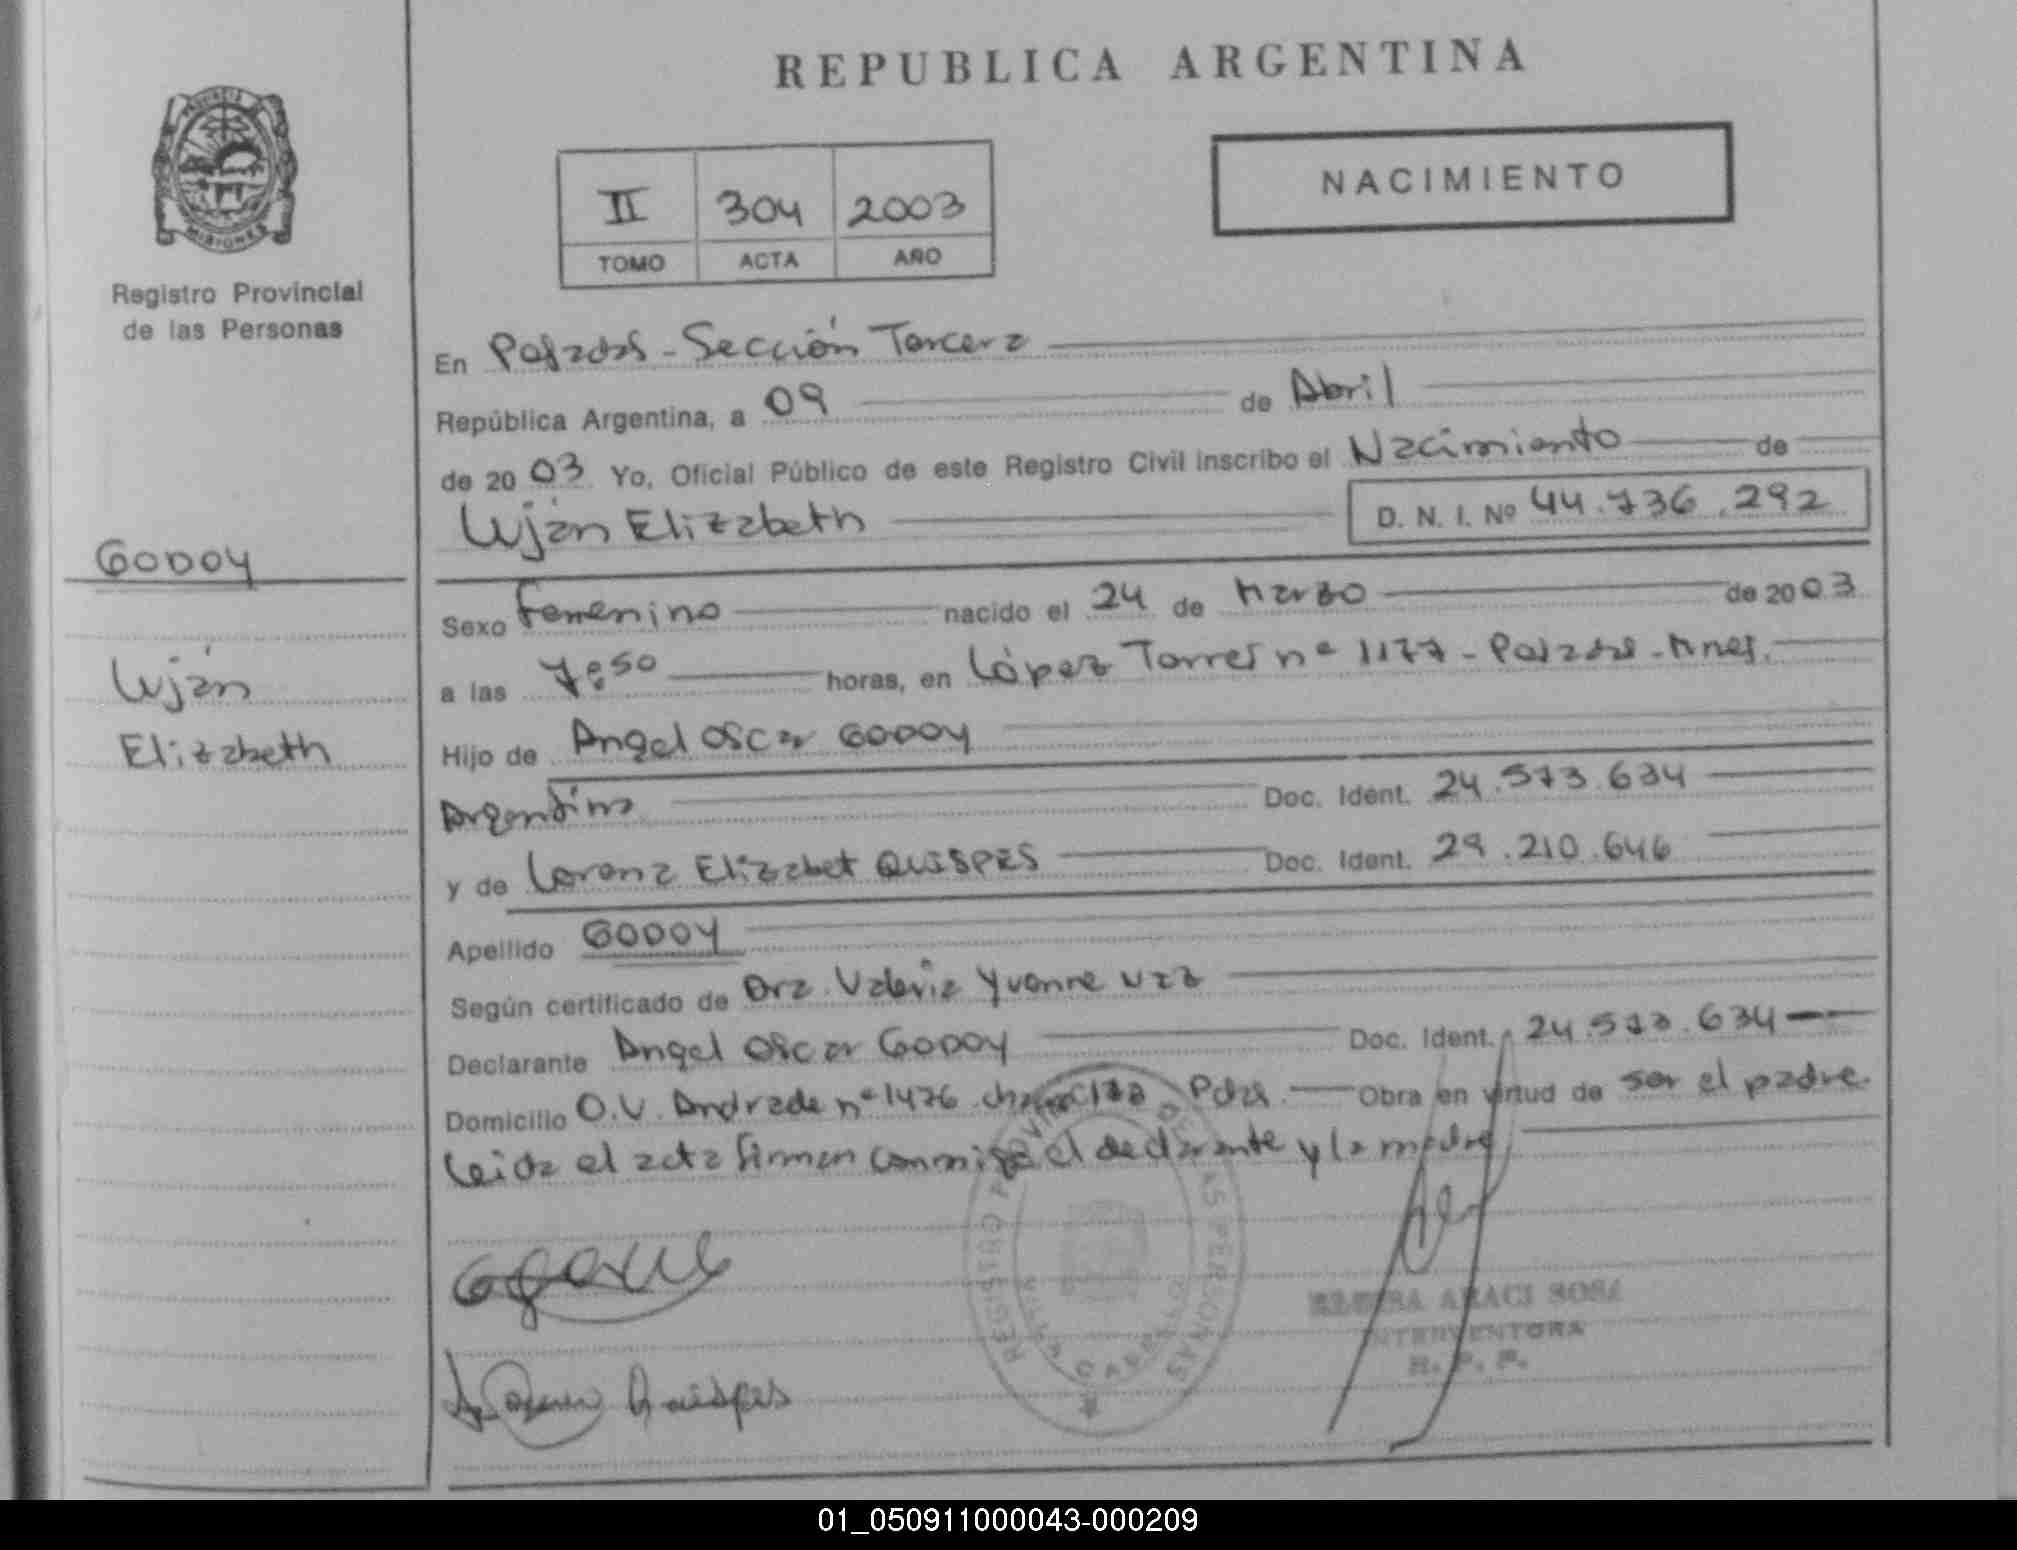 REPUBLICA ARGENTINA
PROVINCIA DE
MISIONES
Registro Provincial
de las Personas
II 304 2003
TOMO ACTA AÑO
NACIMIENTO
En Posadas - Sección Tercera
República Argentina, a 09 de Abril
de 2003 Yo, Oficial Público de este Registro Civil inscribo el Nacimiento de
Luján Elizabeth D. N. I. Nº 44.736.292
GODOY
Luján
Elizabeth
Sexo Femenino nacido el 24 de Marzo de 2003
a las 7:50 horas, en López Torres nº 1177 - Posadas - Mnes.
Hijo de Angel Oscar GODOY
Argentina Doc. Ident. 24.573.634
y de Lorena Elizabet QUISPES Doc. Ident. 29.210.646
Apellido GODOY
Según certificado de Dra. Valeria Yvonne
Declarante Angel Oscar GODOY Doc. Ident. 24.573.634
Domicilio O.V. Andrade nº 1476 Pdas. Obra en virtud de ser el padre.
Leída el acta firman conmigo el declarante y la madre
REGISTRO PROVINCIAL DE LAS PERSONAS
Quispes
ARACI SOSA
INTERVENTORA
R. P. P.
01_050911000043-000209